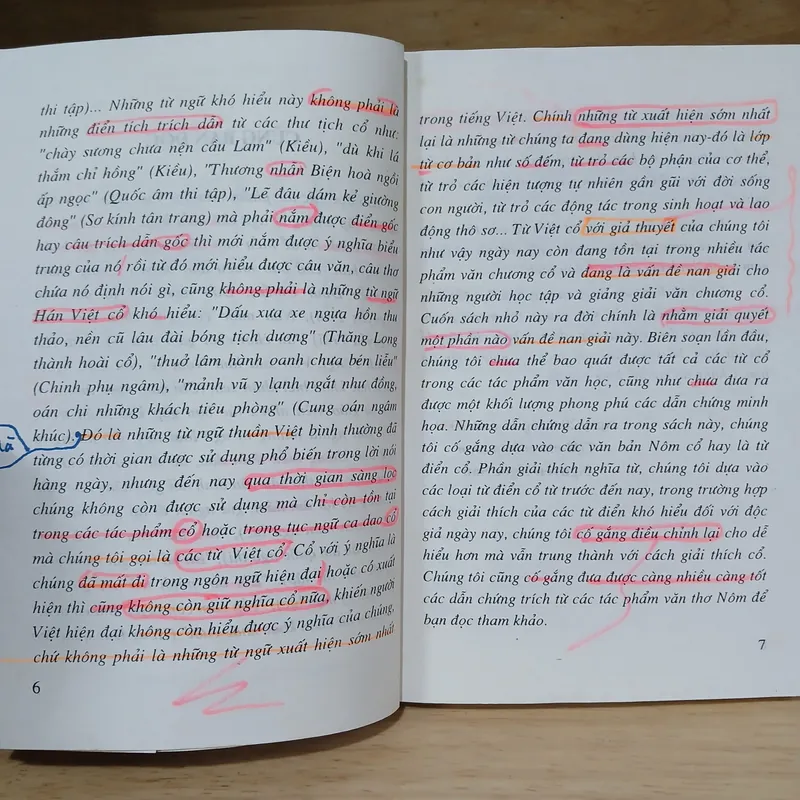 thi tập)... Những từ ngữ khó hiểu này không phải là
những điển tích trích dẫn từ các thư tịch cổ như:
"chày sương chưa nện cầu Lam" (Kiều), "dù khi lá
thắm chỉ hồng" (Kiều), "Thương nhẫn Biện hoà ngồi
ấp ngọc" (Quốc âm thi tập), "Lẽ đâu dám kẻ giường
đông" (Sơ kính tân trang) mà phải nắm được điển gốc
hay câu trích dẫn gốc thì mới nắm được ý nghĩa biểu
trưng của nó rồi từ đó mới hiểu được câu văn, câu thơ
chứa nó định nói gì, cũng không phải là những từ ngữ
Hán Việt cổ khó hiểu: "Dấu xưa xe ngựa hồn thu
thảo, nền cũ lâu đài bóng tịch dương" (Thăng Long
thành hoài cổ), "thuở lâm hành oanh chưa bén liễu"
(Chinh phụ ngâm), "mảnh vũ y lạnh ngắt như đồng,
oán chi những khách tiêu phòng" (Cung oán ngâm
khúc). Đó là những từ ngữ thuần Việt bình thường đã
là
từng có thời gian được sử dụng phổ biến trong lời nói
hàng ngày, nhưng đến nay qua thời gian sàng lọc
chúng không còn được sử dụng mà chỉ còn tồn tại
trong các tác phẩm cổ hoặc trong tục ngữ ca dao cổ
mà chúng tôi gọi là các từ Việt cổ. Cổ với ý nghĩa là
chúng đã mất đi trong ngôn ngữ hiện đại hoặc có xuất
hiện thì cũng không còn giữ nghĩa cổ nữa, khiến người
Việt hiện đại không còn hiểu được ý nghĩa của chúng,
chứ không phải là những từ ngữ xuất hiện sớm nhất
6
trong tiếng Việt. Chính những từ xuất hiện sớm nhất
lại là những từ chúng ta đang dùng hiện nay-đó là lớp
từ cơ bản như số đếm, từ trỏ các bộ phận của cơ thể,
từ trỏ các hiện tượng tự nhiên gần gũi với đời sống
con người, từ trỏ các động tác trong sinh hoạt và lao
động thô sơ... Từ Việt cổ với giả thuyết của chúng tôi
như vậy ngày nay còn đang tồn tại trong nhiều tác
phẩm văn chương cổ và đang là vấn đề nan giải cho
những người học tập và giảng giải văn chương cổ.
Cuốn sách nhỏ này ra đời chính là nhằm giải quyết
một phần nào vấn đề nan giải này. Biên soạn lần đầu,
chúng tôi chưa thể bao quát được tất cả các từ cổ
trong các tác phẩm văn học, cũng như chưa đưa ra
được một khối lượng phong phú các dẫn chứng minh
họa. Những dẫn chứng dẫn ra trong sách này, chúng
tôi cố gắng dựa vào các văn bản Nôm cổ hay là từ
điển cổ. Phần giải thích nghĩa từ, chúng tôi dựa vào
các loại từ điển cổ từ trước đến nay, trong trường hợp
cách giải thích của các từ điển khó hiểu đối với độc
giả ngày nay, chúng tôi cố gắng điều chỉnh lại cho dễ
hiểu hơn mà vẫn trung thành với cách giải thích cổ.
Chúng tôi cũng cố gắng đưa được càng nhiều càng tốt
các dẫn chứng trích từ các tác phẩm văn thơ Nôm để
bạn đọc tham khảo.
7